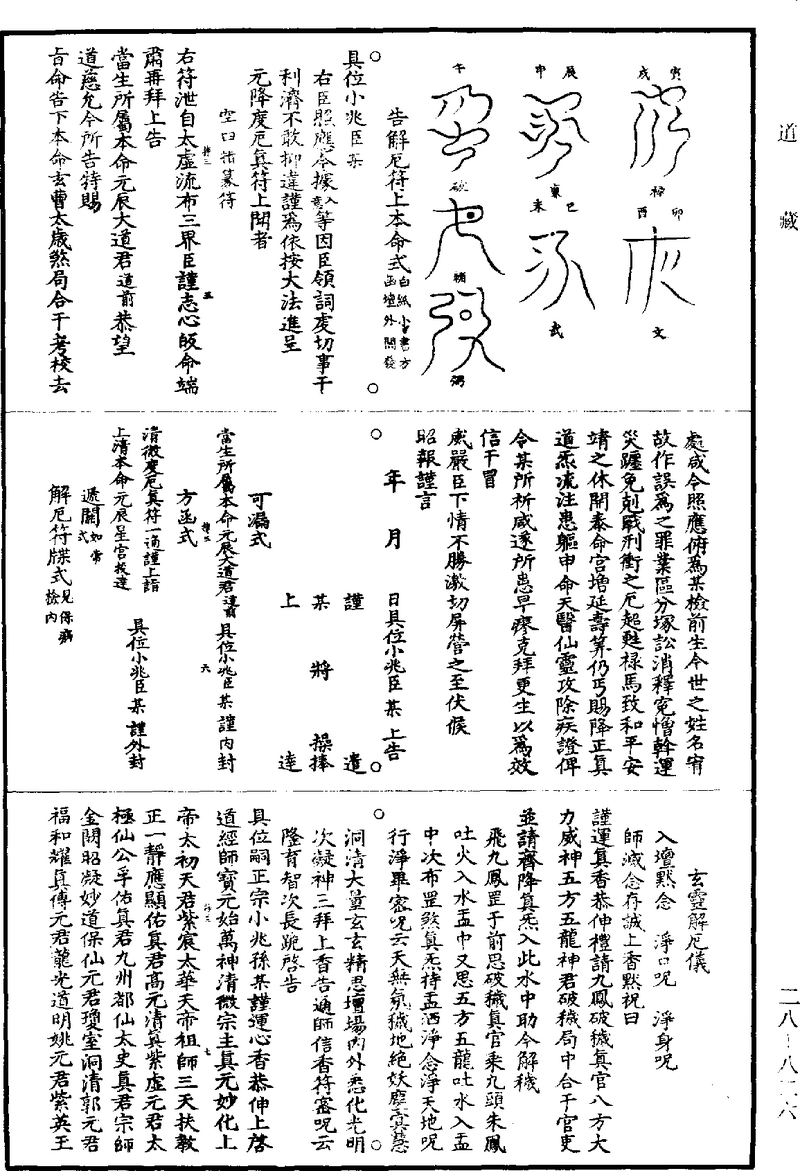 道藏
寅 戌
祿
卯 酉
文
辰 申
廉
巳 未
武
午
破
輔
弼
告解厄符上本命式白紙小書方函壇外開發
具位小兆臣某
右臣照應本據入意等因臣領詞虔切事干
利濟不敢抑違謹為依按大法進呈
元降度厄真符上聞者
空白措篆符
右符泄自太虛流布三界臣謹志心皈命端
肅再拜上告
當生所屬本命元辰大道君道前恭望
道慈允今所告特賜
旨命告下本命玄曹太歲煞局合干考校去
處咸令照應俯為某檢前生今世之姓名宥
故作誤為之罪業區分塚訟消釋冤憎斡運
災躔免剋戰刑衝之厄起甦祿馬致和平安
靖之休開泰命宮增延壽算仍丐賜降正真
道炁流注患軀申命天醫仙靈攻除疾證俾
令某所祈咸遂所患早瘳克拜更生以為效
信干冒
威嚴臣下情不勝激切屏營之至伏候
昭報謹言
年 月 日具位小兆臣某上告
謹遣
某將操捧
上達
可漏式
當生所屬本命元辰大道君道前 具位小兆臣某謹內封
方函式
清微度厄真符一通謹上詣
上清本命元辰星宮投達 具位小兆臣某謹外封
遞關式如常
解厄符牒式見保病檢內
玄靈解厄儀
入壇默念 淨口呪 淨身呪
師滅念存誠上香默祝曰
謹運真香恭伸禮請九鳳破穢真官八方大
力威神五方五龍神君破穢局中合干官吏
並請齊降真炁入此水中助令解穢
飛九鳳罡于前思破穢真官乘九頭朱鳳
吐火入水盂中又思五方五龍吐水入盂
中次布罡煞真炁持盂洒淨念淨天地呪
行淨畢密呪云天無氛穢地絕妖塵冥慧
洞清大量玄玄精思壇場內外悉化光明
次凝神三拜上香告通師信香符密呪云
隆育智次長跪啓告
具位嗣正宗小兆孫某謹運心香恭伸上啓
道經師寶元始萬神清微宗主真元妙化上
帝太初天君紫宸太華天帝祖師三天扶教
正一靜應顯佑真君高元清真紫虛元君太
極仙公孚佑真君九州都仙太史真君宗師
金闕昭凝妙道保仙元君瓊室洞清郭元君
福和耀真傅元君龍光道明姚元君紫英王
二八—八二六